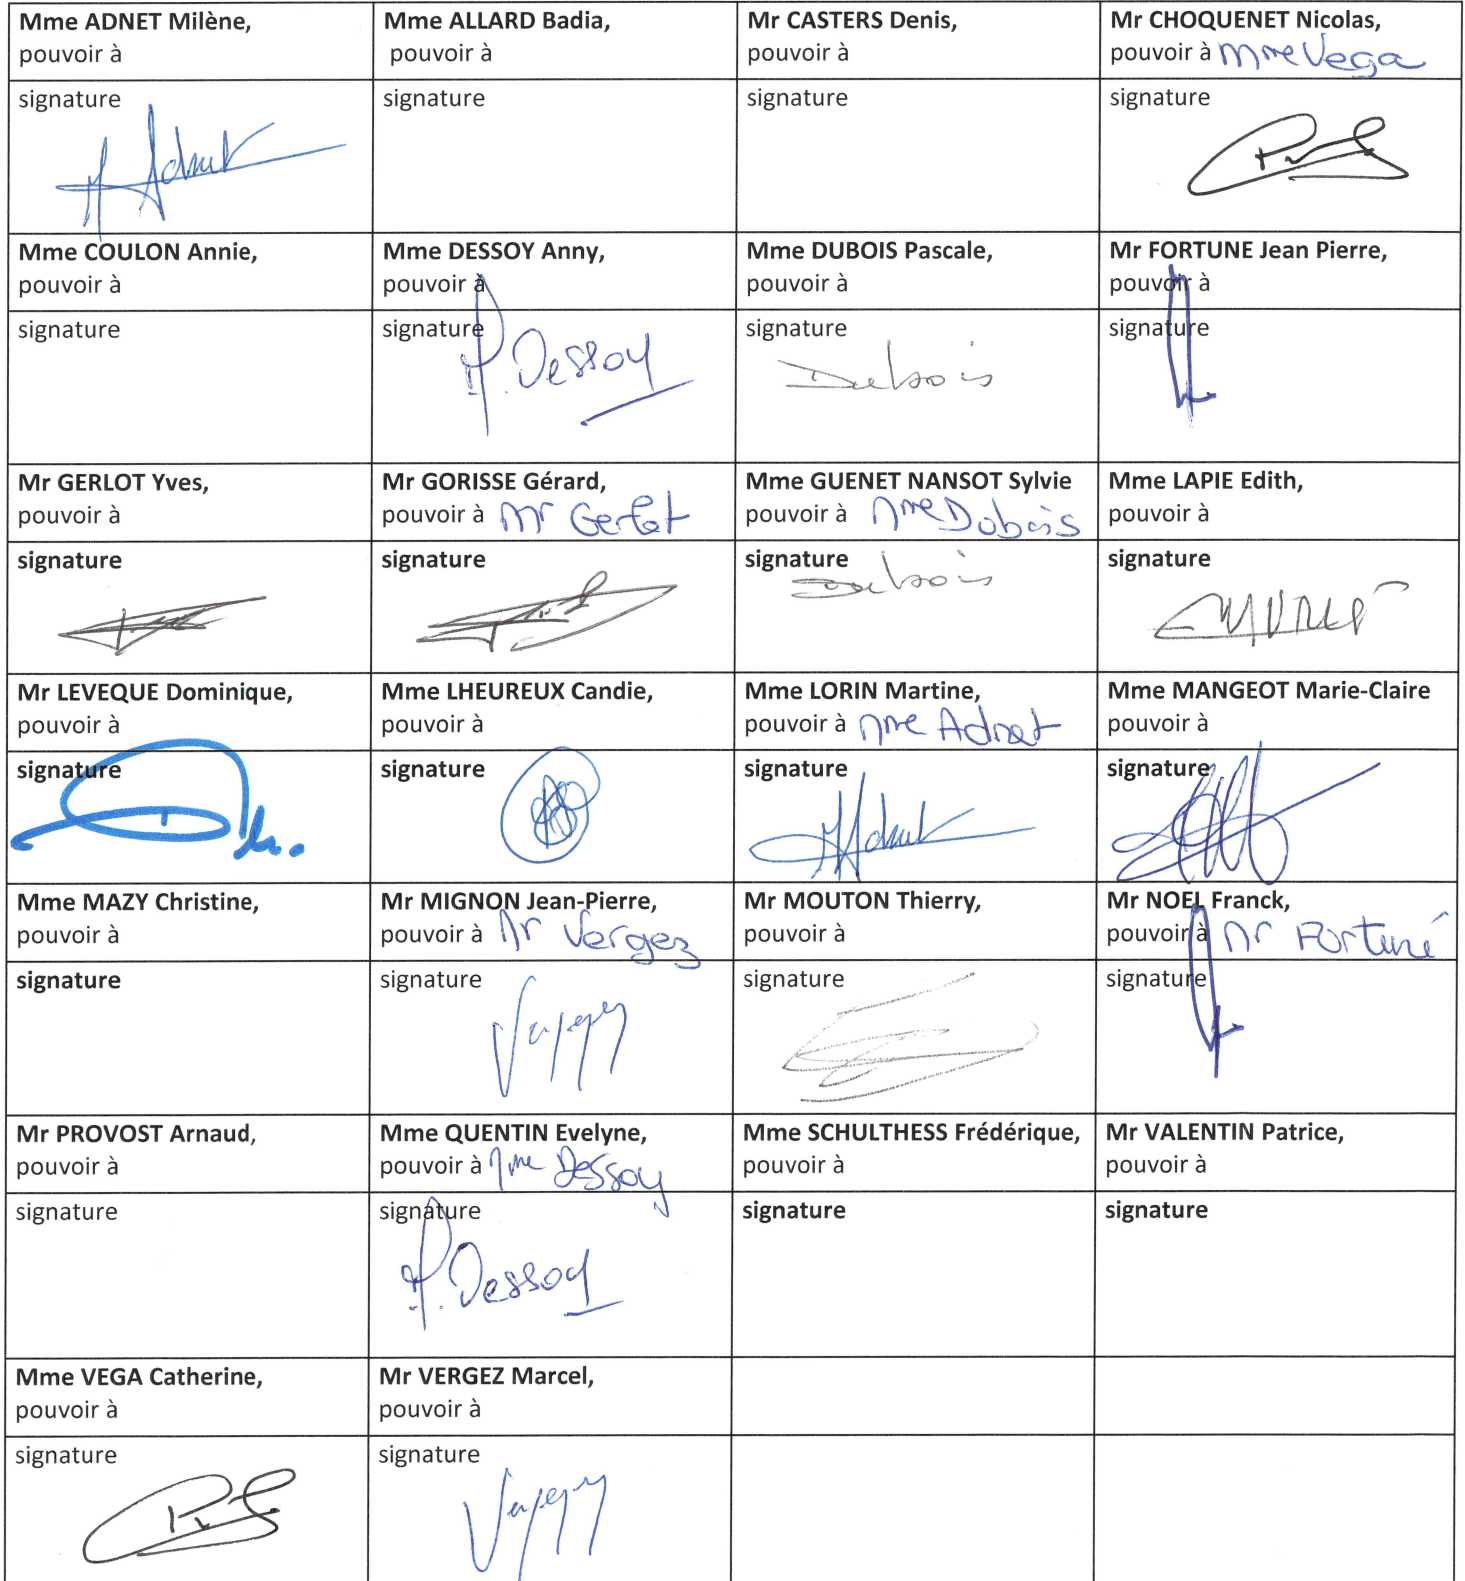 Mme ADNET Milène,
pouvoir à
Mme ALLARD Badia,
pouvoir à
Mr CASTERS Denis,
pouvoir à
Mr CHOQUENET Nicolas,
pouvoir à Mme Vega
signature
Adnet
signature
signature
signature
Mme COULON Annie,
pouvoir à
Mme DESSOY Anny,
pouvoir à
Mme DUBOIS Pascale,
pouvoir à
Mr FORTUNE Jean Pierre,
pouvoir à
signature
signature
A. Dessoy
signature
Dubois
signature
Mr GERLOT Yves,
pouvoir à
Mr GORISSE Gérard,
pouvoir à Mr Gerlot
Mme GUENET NANSOT Sylvie
pouvoir à Mme Dubois
Mme LAPIE Edith,
pouvoir à
signature
signature
signature
Dubois
signature
Mr LEVEQUE Dominique,
pouvoir à
Mme LHEUREUX Candie,
pouvoir à
Mme LORIN Martine,
pouvoir à Mme Adnet
Mme MANGEOT Marie-Claire
pouvoir à
signature
signature
signature
Adnet
signature
Mme MAZY Christine,
pouvoir à
Mr MIGNON Jean-Pierre,
pouvoir à Mr Vergez
Mr MOUTON Thierry,
pouvoir à
Mr NOEL Franck,
pouvoir à Mr Fortuné
signature
signature
Vergez
signature
signature
Mr PROVOST Arnaud,
pouvoir à
Mme QUENTIN Evelyne,
pouvoir à Mme Dessoy
Mme SCHULTHESS Frédérique,
pouvoir à
Mr VALENTIN Patrice,
pouvoir à
signature
signature
A. Dessoy
signature
signature
Mme VEGA Catherine,
pouvoir à
Mr VERGEZ Marcel,
pouvoir à
signature
signature
Vergez